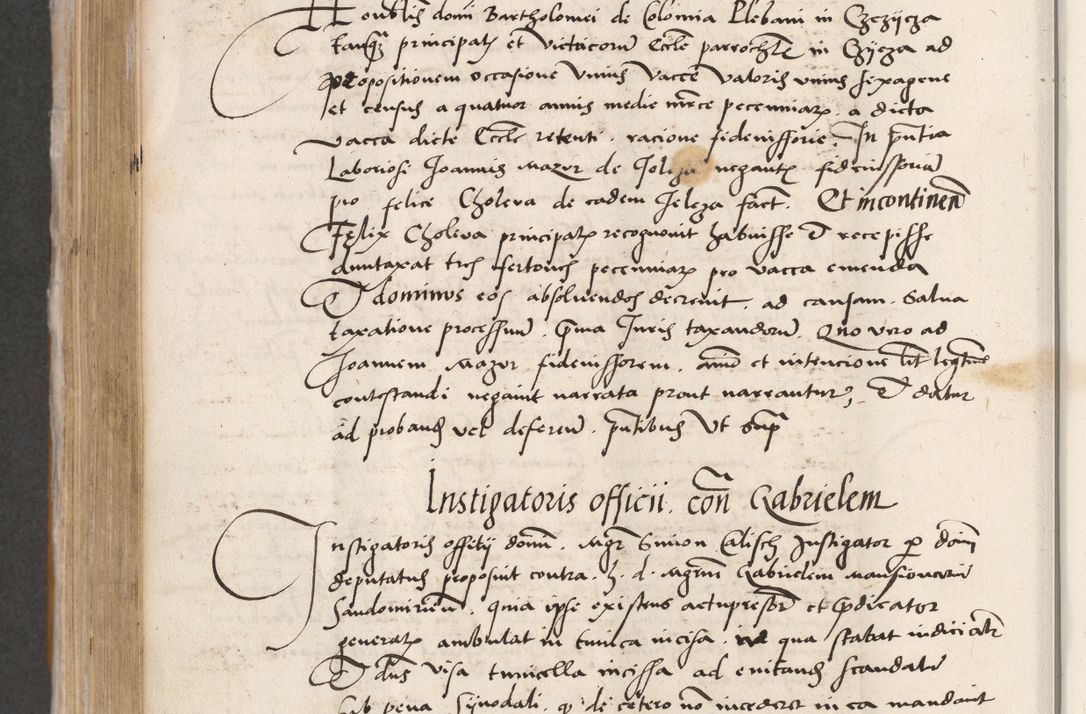 Honblis domi Bartholomei de Colomia Plebani in Czczijcza
tanqz principalis et victricorum Eccle parrochlis in Czijcza ad
propositionem occasione unius vacce valoris unius sexagene
et census a quatuor annis medie mrce pecuniarz a dicta
vacca dicte Eccle retenti racione fideiussorie In pntia
Laboriosi Joannis Mazur de negantis fideiussoriam
pro felice Choleva de eadem Jeleza fact. Et incontinen
Felix Choleva principalis recognovit habuisse et recepisse
duntaxat tres fertones pecuniarz pro vacca emenda
Et dominus eos absolvendos decrevit ad causam Salva
taxatione processum quia Juris taxandorum Quo vero ad
Joannem Mazur fideiussorem animo et intencione lit legitime
contestandi negavit narrata prout narrantur, Et datur
ad proband vel deferen pntibus Ut supra
Instigatoris officii con Gabrielem
Instigatoris offitij domini Mgr Simon Calisch Instigator per domi
deputatus proposuit contra h. d. Mgrm Gabrielem Mansionarium
Sandomirien quia ipse existens actu presbr et predicator
generalis ambulat in tunica incisa in qua stabat indicialr
Et dns visa tunicella incissa ad evitand scandala
Sub pena Synodali q de cetero non incederet in ea mandavit